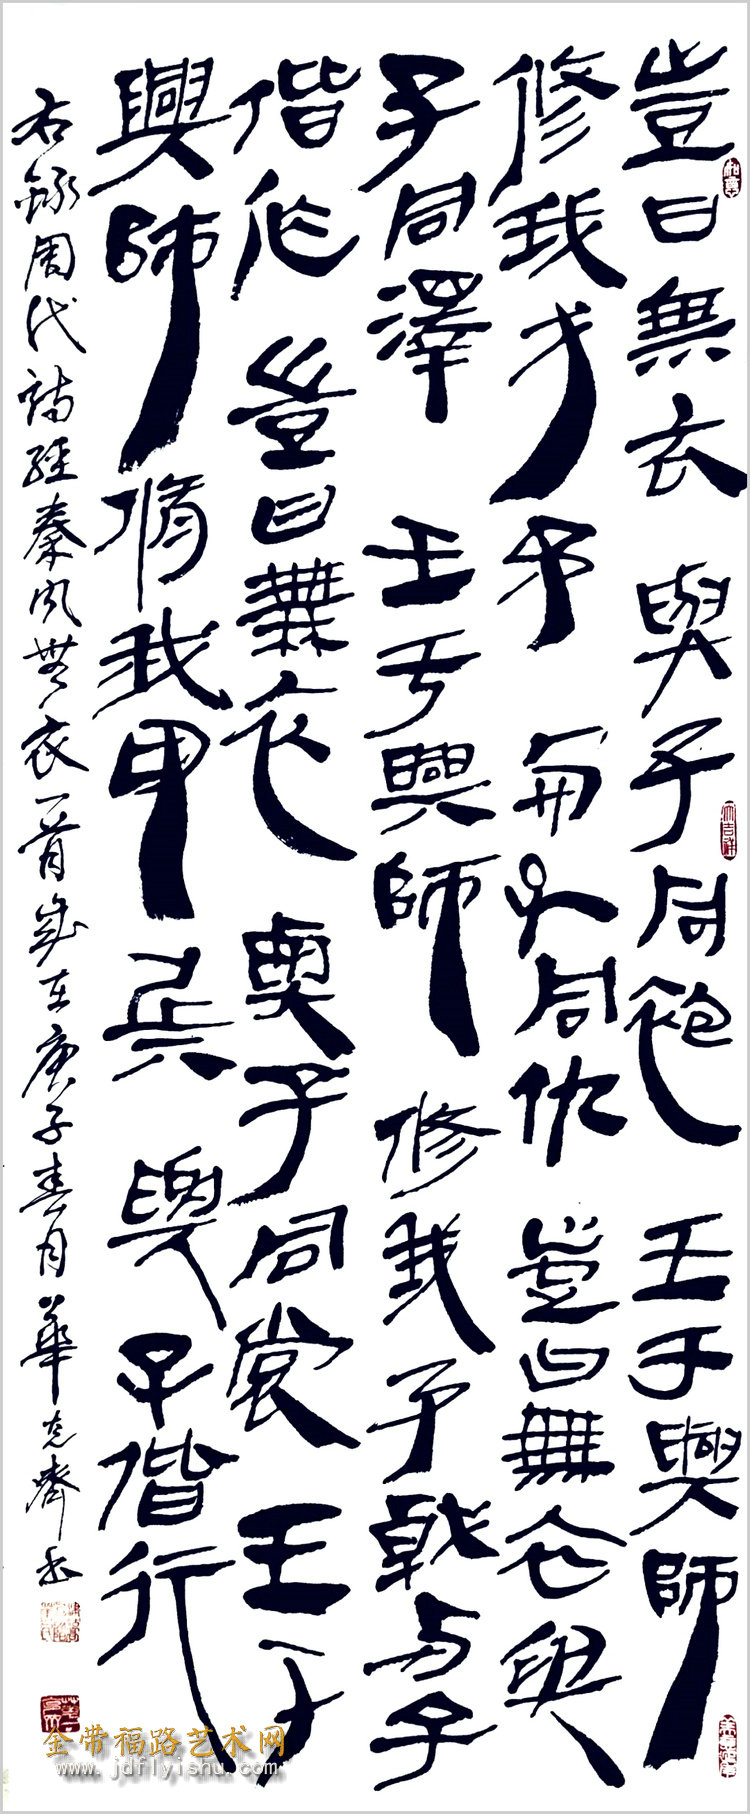 豈曰無衣與子同袍王于興師
修我戈矛與子同仇豈曰無衣與
子同澤王于興師修我矛戟与子
偕作豈曰無衣與子同裳王于
興師修我甲兵與子偕行
右錄周代詩經秦風無衣一首歲在庚子春月華克齊書
大吉祥
金带福路艺术网
www.jdflyishu.com